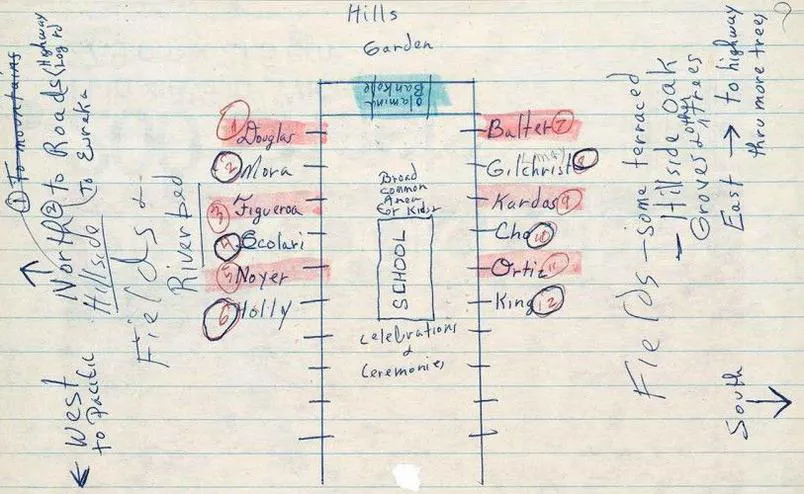 Hills
Garden
Olamina
Bankole
① To mountains
North ② to Roads (Highway
(Log rd)
To Eureka
Hillside
Fields +
Riverbed
West
to Pacific
1 Douglas
2 Mora
3 Figueroa
4 Scolari
5 Noyer
6 Holly
Broad
common
Area
for Kids
SCHOOL
celebrations
+
Ceremonies
Balter 7
Gilchrist 8
(May)
Kardos 9
Cho 10
Ortiz 11
King 12
Fields - some terraced
- Hillside oak
Groves + other trees
East → to highway
thru more trees
South